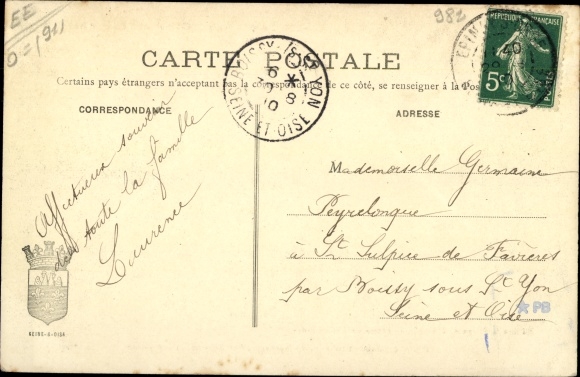 EE
982
CARTE POSTALE
Certains pays étrangers n'acceptant pas la correspondance de ce côté, se renseigner à la Poste
CORRESPONDANCE
ADRESSE
REPUBLIQUE FRANÇAISE
5c
POSTES
BOISSY-SOUS-ST-YON
SEINE ET OISE
Affectueux souvenir
de toute la famille
Laurence
Mademoiselle Germaine
Peyrelongue
à St Sulpice de Favières
par Boissy sous St Yon
Seine et Oise
PB
SEINE-&-OISE